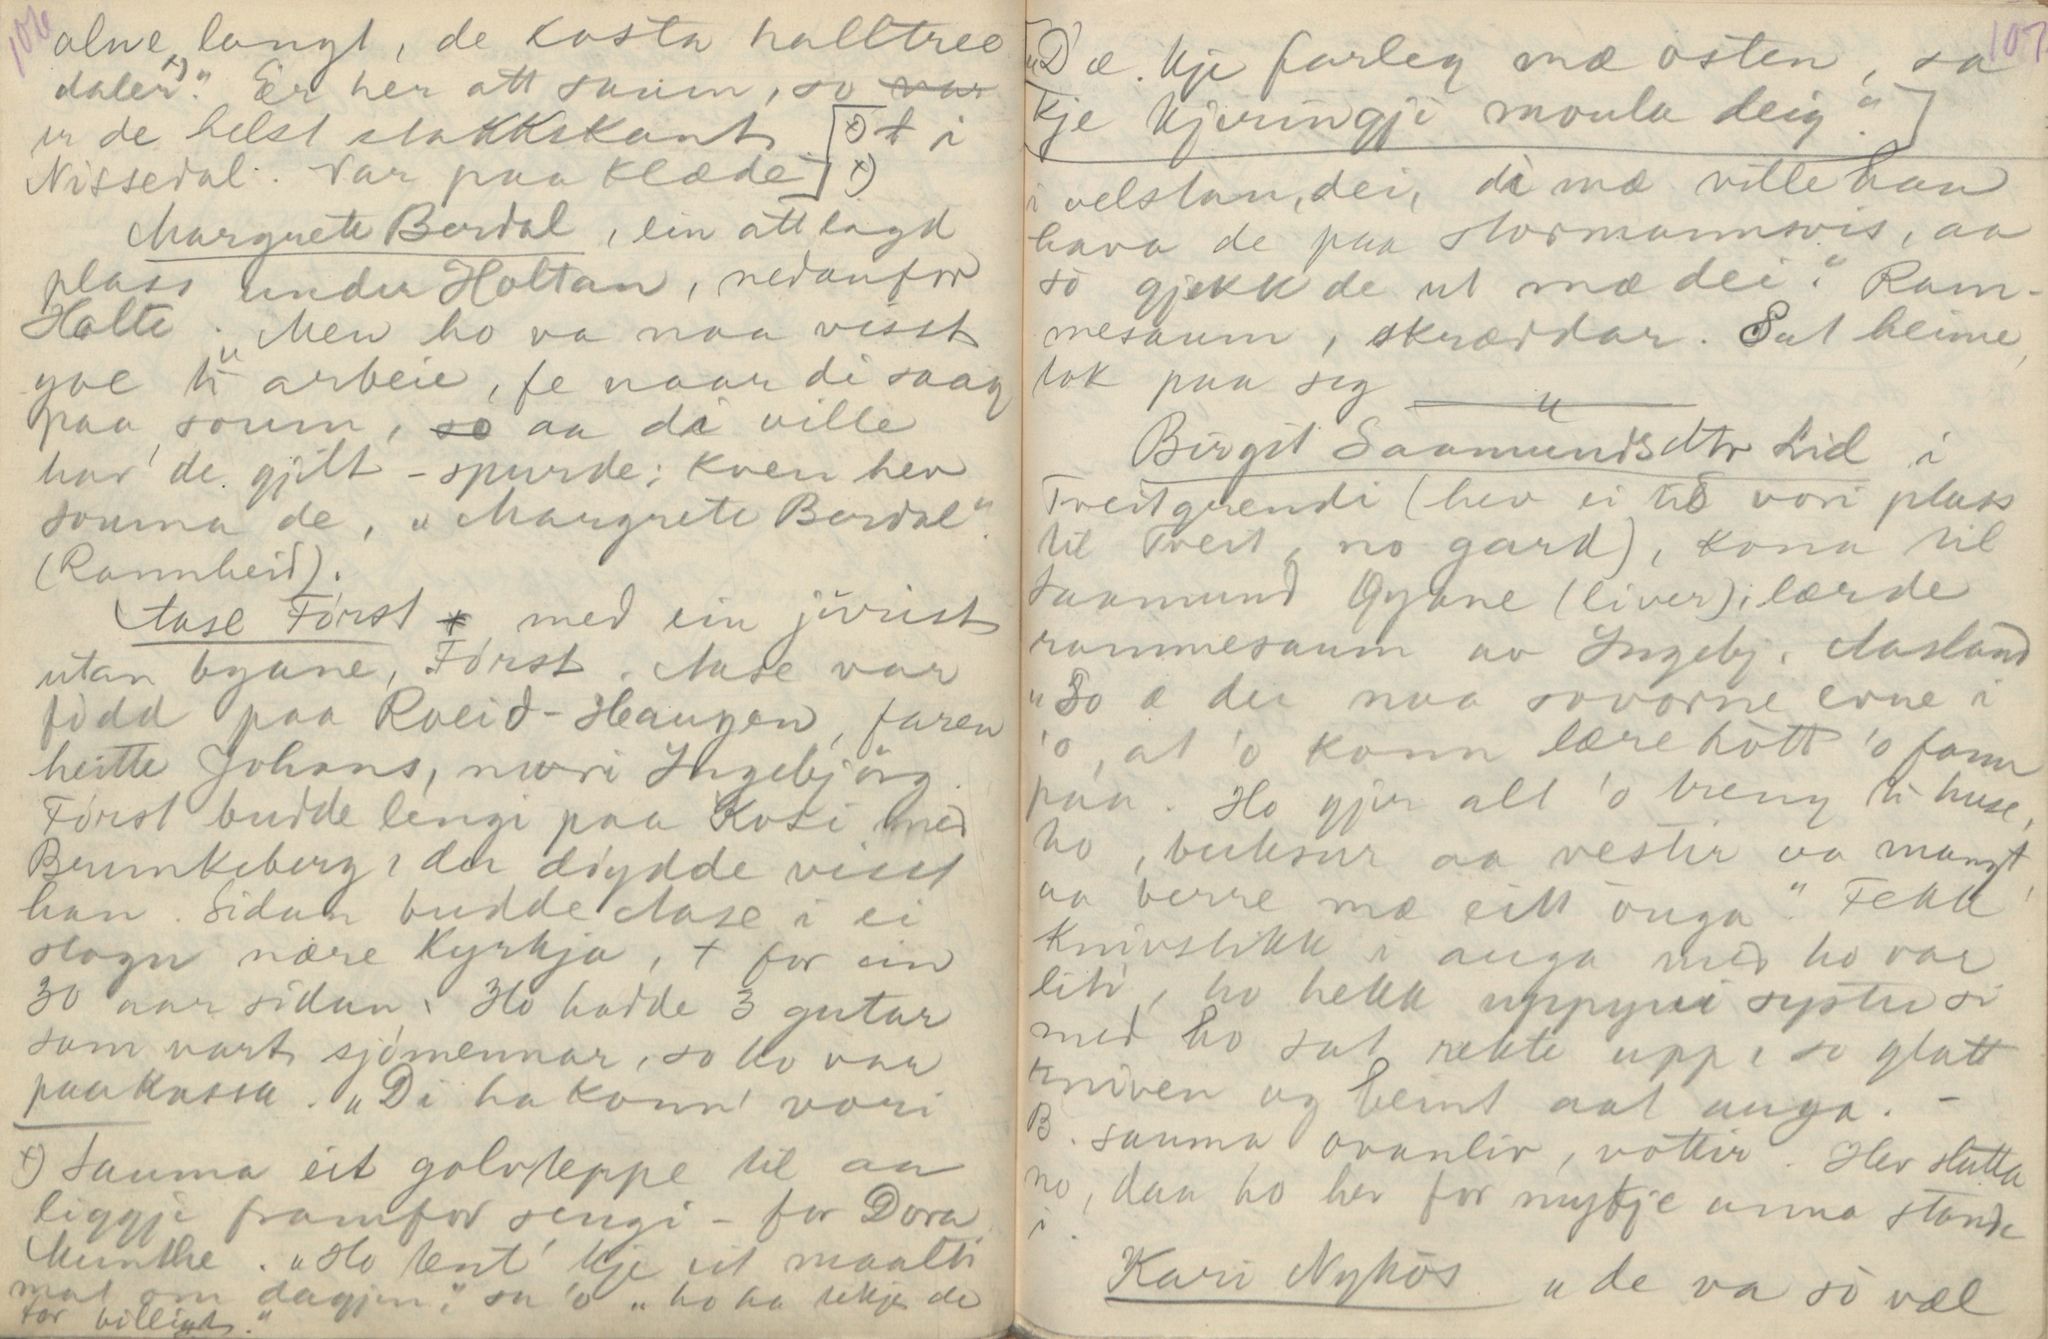 106
alne langt, de kosta halltree
daler x)." Er her att saum, so var
er de helst stakkskant [x) + i
Nissedal. Var paa klæde] x)
Margrete Berdal, ein attlagd
plass under Holtan, nedanfor
Holte. "Men ho va naa visst
goe ti arbeie, fe naar di saag
paa soum, so aa di ville
hav' de gjilt - spurde: Kven hev
souma de, "Margrete Berdal".
(Rannheid).
Aase Först * med ein jurist
utan byane, Först. Aase var
född paa Roeid-Haugen, faren
heitte Johans, mori Ingebjörg.
Först budde lengi paa Kosi med
Brunkeberg, der döydde visst
han. Sidan budde Aase i ei
stogu nære Kyrkja, + for ein
30 aar sidan. Ho hadde 3 gutar
som vart sjömennar, so ho var
paakassa. "Di ha konn' vori
x) Sauma eit golvteppe til aa
liggji framfor sengi - for Dora
Munthe. "Ho tent' kje eit maalti
mat om dagjen," sa 'o "ho ha tikje de
for billigt."
107
["D'æ. kje farleg mæ osten, sa
kje kjeringji moula deig."]
i velstan, dei, di mæ ville han
hava de paa stormannsvis, aa
so gjekk de ut mæ dei." Ram-
mesaum, skræddar. Sat heime,
tok paa seg
Birgit Saamundsdtr Lid i
Treitgrendi (hev ei tid vori plass
til Treit, no gard), kona til
Saamund Öyane (liver); lærde
rammesaum av Ingebj. Aasland
"So æ dei naa sovorne evne i
'o, at 'o konn lære hött 'o fann
paa. Ho gjer alt 'o treng ti huse,
ho, buksur aa vestir aa mangt,
aa berre mæ eitt ouga". Fekk
knivstikk i auga med ho var
liti, ho hekk uppyvi syster si
med ho sat rekte upp, so glatt
kniven og beint aat auga. -
B. sauma ovanliv, vottir. Hev slutta
no, daa ho hev for mykje anna stande
i.
Kari Nykös "de va so væl